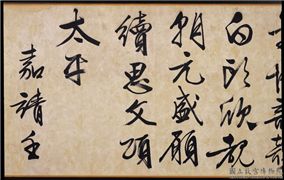 白頭欣覩
朝元盛願
續思文頌
太平
嘉靖壬
國立故宮博物院